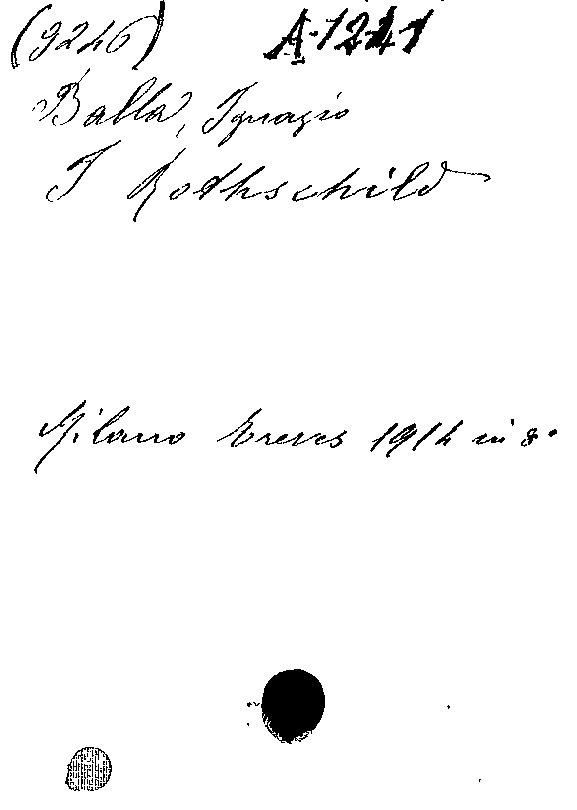 (9246) A-1241
Balla, Ignazio
I Rothschild
Milano Treves 1914 in 8°